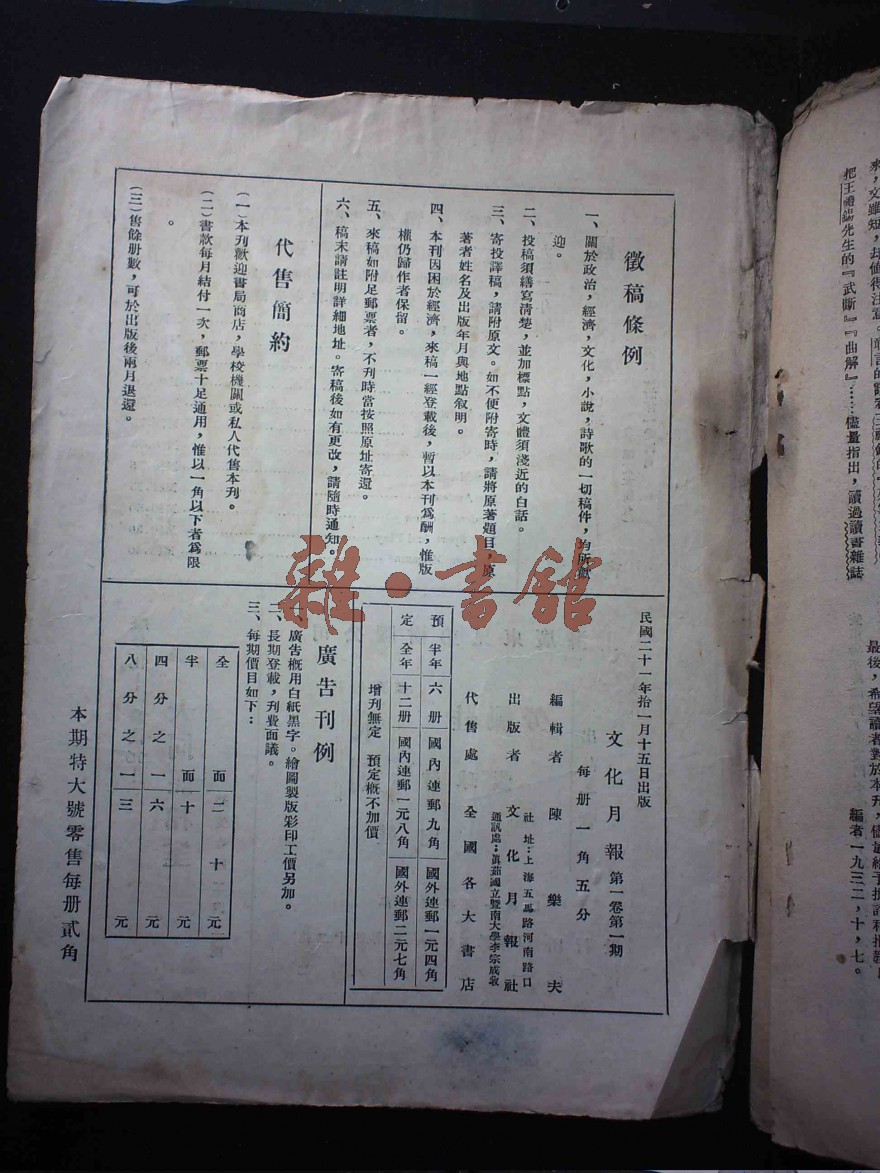 徵稿條例
一、關於政治，經濟，文化，小說，詩歌的一切稿件，均所歡
迎。
二、投稿須繕寫清楚，並加標點，文體須淺近的白話。
三、寄投譯稿，請附原文。如不便附寄時，請將原著題目，原
著者姓名及出版年月與地點敘明。
四、本刊因困於經濟，來稿一經登載後，暫以本刊爲酬，惟版
權仍歸作者保留。
五、來稿如附足郵票者，不刋時當按照原址寄還。
六、稿末請註明詳細地址。寄稿後如有更改，請隨時通知。
代售簡約
(一)本刋歡迎書局商店，學校機關或私人代售本刋。
(二)書款每月結付一次，郵票十足通用，惟以一角以下者爲限
。
(三)售餘册數，可於出版後兩月退還。
民國二十一年拾一月十五日出版
文化月報 第一卷第一期
每册一角五分
編輯者 陳樂夫
社址：上海五馬路河南路口
出版者 文化月報社
通訊處：眞茹國立暨南大學李宗成收
代售處 全國各大書店
預 半年 六册 國內連郵九角 國外連郵一元四角
定 全年 十二册 國內連郵一元八角 國外連郵二元七角
增刋無定 預定概不加價
廣告刋例
一、廣告概用白紙黑字。繪圖製版彩印工價另加。
二、長期登載，刋費面議。
三、每期價目如下：
全面 二十元
半面 十元
四分之一 六元
八分之一 三元
本期特大號零售每册貳角
雜·書館
來，文雖短，却值得注意。
把王禮錫先生的『武斷』『曲解』……儘量指出，讀過讀書雜誌
最後，希望讀者對於本刋，儘量給予批評和指教
編者一九三二，十，七。